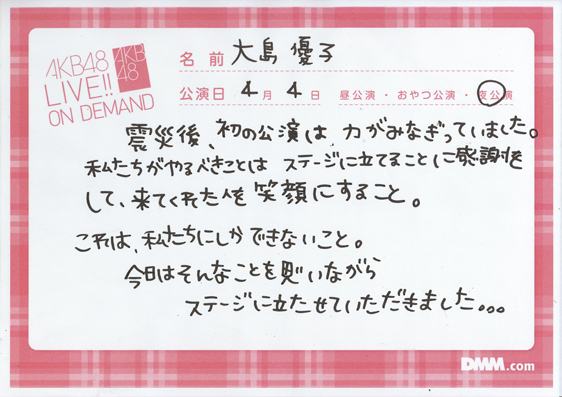 AKB48
LIVE!!
ON DEMAND
AKB
48
名前 大島優子
公演日 4月4日 昼公演・おやつ公演・夜公演
震災後、初の公演は、力がみなぎっていました。
私たちがやるべきことは ステージに立てることに感謝を
して、来てくれた人を笑顔にすること。
これは、私たちにしかできないこと。
今日はそんなことを思いながら
ステージに立たせていただきました。。。
DMM.com